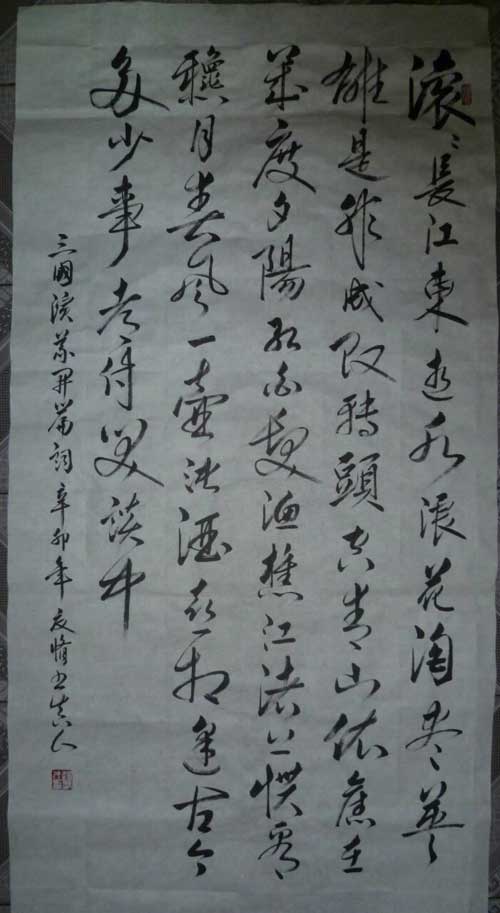 滚〻長江東逝水浪花淘盡英
雄是非成敗轉頭空青山依舊在
幾度夕陽紅白髮漁樵江渚上慣看
穐月春風一壺濁酒喜相逢古今
多少事都付笑談中
三國演義開篇詞辛卯年